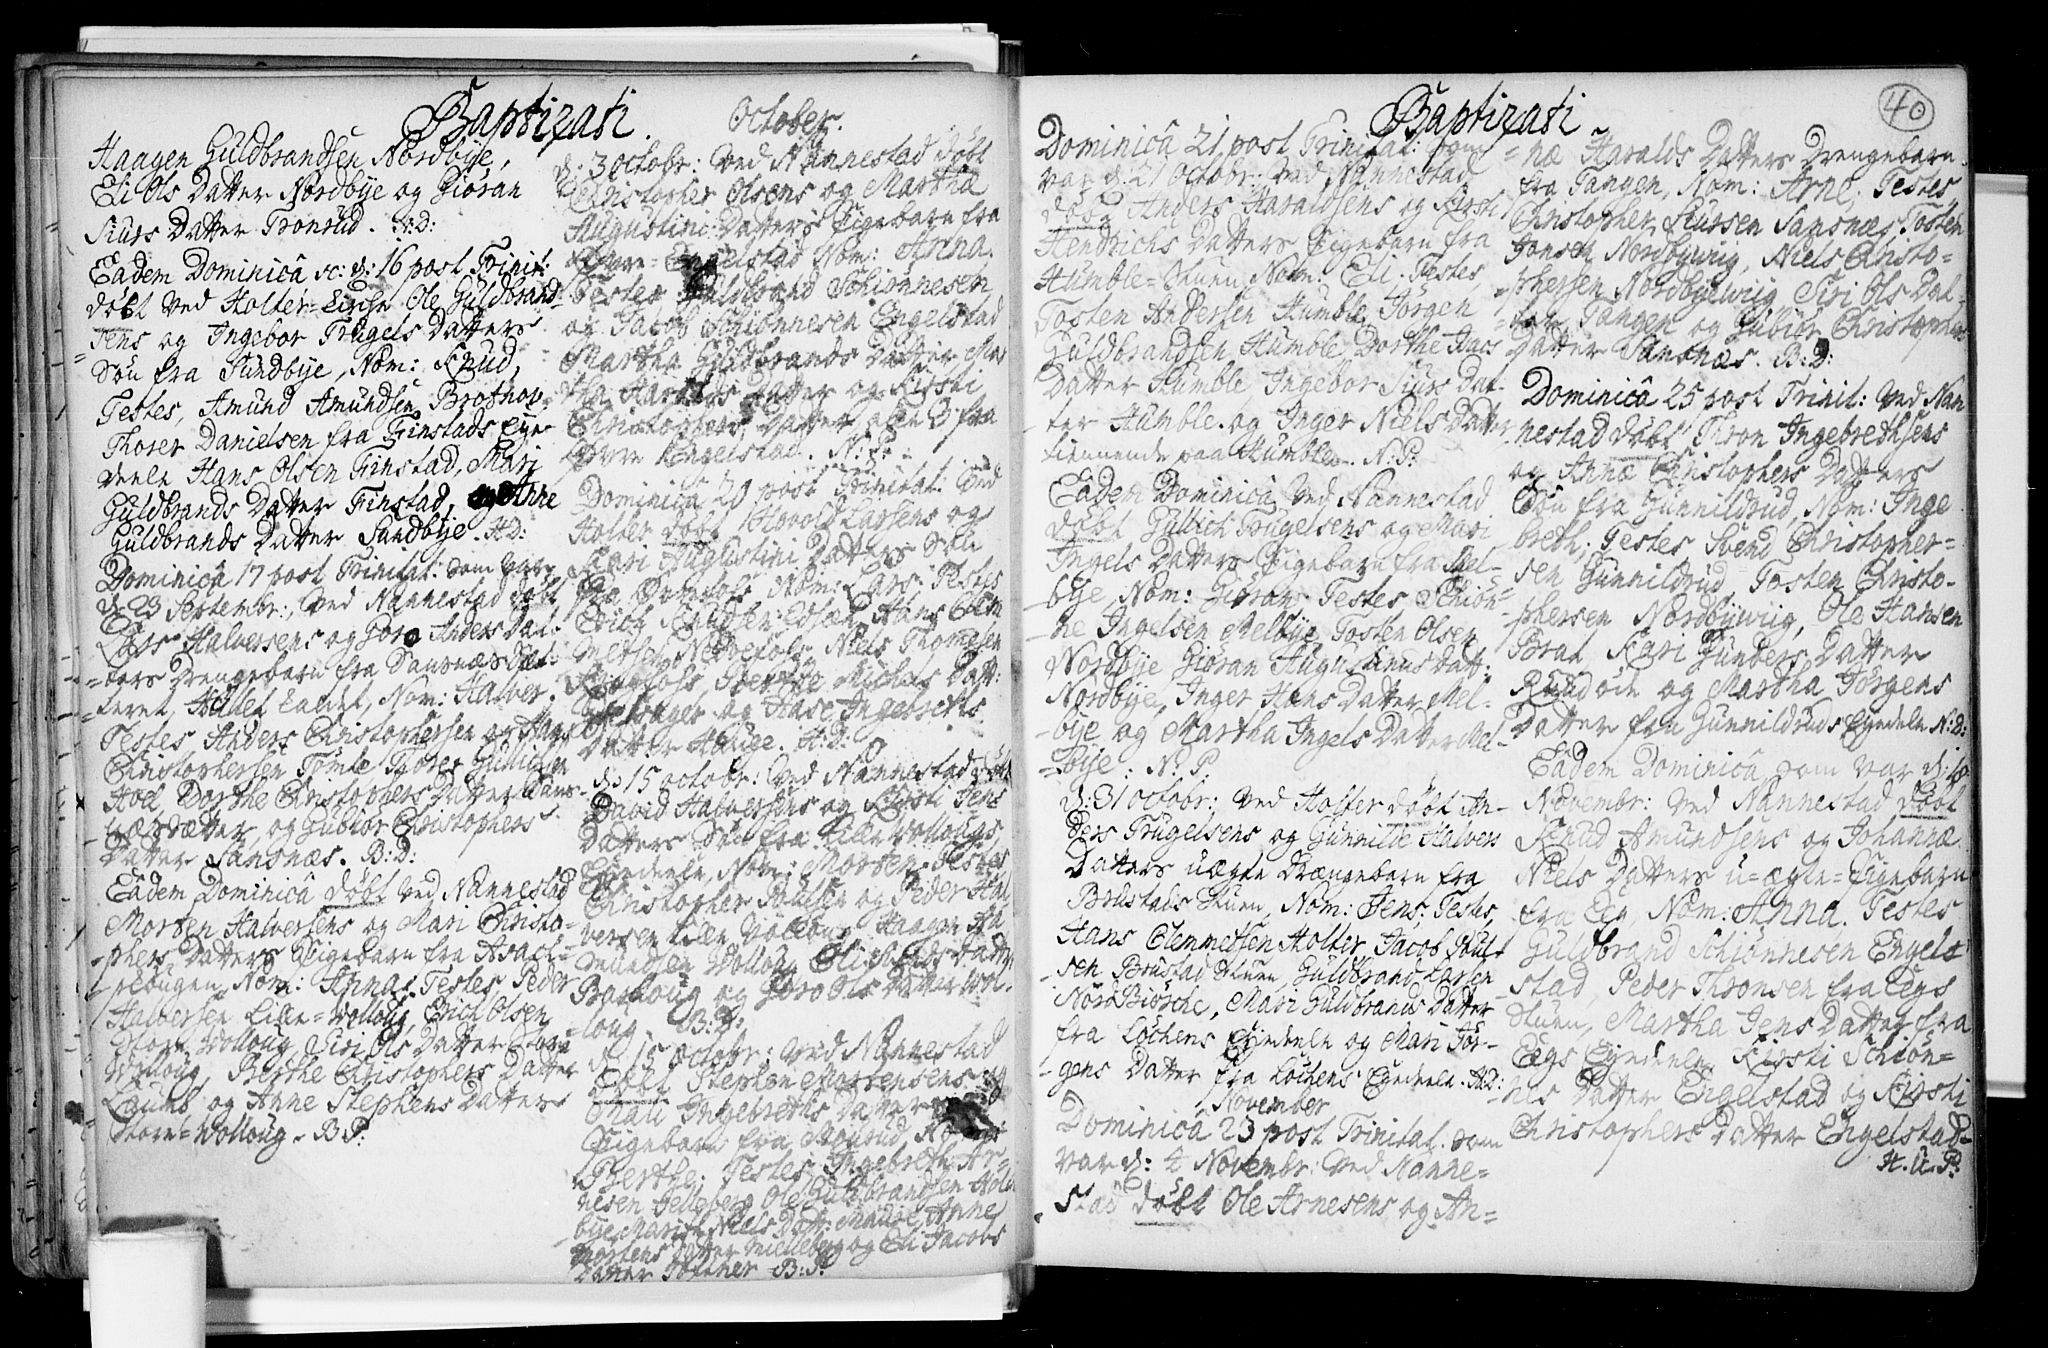 Baptizati.
Haagen Guldbrandsen Nordbye,
Eli Ols Datter Nordbye og Giöran
Siurs Datter Tronsrud. H:D:
Eadem Dominicâ sc: d: 16 post Trinit:
döbt ved Holter-Kirche Ole Guldbrand-
=sens og Ingebor Trugels Datters
Sön fra Sundbye, Nom: Knud,
Testes, Amund Amundsen
Thorer Danielsen fra Finstads Eye-
deele Hans Olsen Finstad, Mari
Guldbrands Datter Finstad, og Anne
Guldbrands Datter Sundbye. H:D:
Dominicâ 17 post Trinitat: som var
d: 23 Septembr:, ved Nannestad döbt
Lars Halversens og Goro Anders Dat-
=ters Drengebarn fra Dansnæs
kaldet, Nom: Halver.
Testes, Anders Christophersen og Hans
Christophersen Tömte Thorer Gullichsen
Hoel, Dorthe Christophers Datter
og Gubiör Christophers
Datter Sansnæs. B:D:
Eadem Dominicâ döbt ved Nannestad
Morten Halversens og Mari Christo-
-phers Datters Pigebarn fra
Nom: Anna, Testes Peder
Halversen Lille=Wolloug, Erich Olsen
Store Wolloug, Siri Ols Datter Store
Wolloug, Berthe Christophers Datter
Laumb og Anne Stephens Datter
Store=Wolloug. B:P:
October.
d: 3 Octobr: ved Nannestad döbt
Christopher Olsens og Martha
Augustini Datters Pigebarn fra
Engelstad Nom: Anna.
Testes Guldbrand Schiönnesen
og Jacob Schiönnesen Engelstad
Martha Guldbrands Datter Mar-
tha Haralds Datter og Kirsti
Christophers Datter, alle 3 fra
Engelstad. N:P:
Dominicâ 20 post Trinitat: ved
Holter döbt Hovold Larsens og
Kari Augustini Datters Sön
fra Nom: Lars. Testes
Erich Knudsen Hans Clem
metsen Niels Thoresen
Michels Datt:
og Aase Ingebreths
Datter Houge. H:D:
d: 15 octobr: ved Nannestad döbt
David Halversens og Kirsti Jens
Datters Sön fra Lille Wollougs
Eyedeele, Nom: Morten. Testes
Christopher Poulsen og Peder Hal
versen Lille Wolloug Haagen A-
mundsen Wolloug Eli Datter
og Goro Ols Datter Wol-
-loug. B:P:
d: 15 octobr: ved Nannestad
döbt Morten Mortensens og
Mari Ingebreths Datters
Pigebarn fra Mourud, Nom:
Berthe; Testes, Ingebreth Ar-
nesen Ole Guldbrandsen Hol-
bye, Marithe Niels Datt: Anne
Mortens Datter Mielleberg og Eli Jacobs
Datter B:P:
Baptizati
40
Dominicâ 21 post Trinitat: som
var d: 21 Octobr: ved Nannestad
döbt Anders Haraldsens og Kirsti
Hendrichs Datters Pigebarn fra
Humble-Stuen, Nom: Eli. Testes,
Tosten Andersen Humble, Jörgen
Guldbrandsen Humble, Dorthe Aaes
Datter Humble, Ingebor Siurs Dat-
-ter Humble. og Inger Niels Datter
tiennende paa Humble. N:P:
Eadem Dominicâ, ved Nannestad
döbt Gullich Trugelsens og Mari
Ingels Datters Pigebarn fra Mel-
-bye, Nom: Giöran, Testes Schiön-
-ne Ingelsen Melbye, Tosten Olsen
Nordbye, Giöran Augustinus Datt:
Nordbye, Inger Hans Datter Mel-
-bye og Martha Ingels Datter Mel-
=bye. N:P:
d: 31 octobr: ved Holter döbt An-
ders Trugelsens og Gunnilde Halvers
Datters uægte Drængebarn fra
Brustads Stuen, Nom: Jens; Testes,
Hans Clemmetsen Holter, Jacob Poul-
sen Brustad Stuen, Guldbrand Larsen
Nord Biörche, Mari Guldbrands Datter
fra Lochens Eyedeele og Mari Jör-
-gens Datter fra Lochens Eyedeele. H:D:
November
Dominicâ 23 post Trinitat: som
var d: 4 Novembr: ved Nanne=
stad döbt Ole Arnesens og An=
=næ Haralds Datters Drengebarn
fra Tangen, Nom: Arne; Testes,
Christopher Siursen Sansnæs, Tosten
Jonsen Nordbywiig, Niels Christo-
-phersen Nordbyewiig, Siri Ols Dat-
-ter Tangen og Gubiör Christophers
Datter Sansnæs. B:D:
Dominicâ 25 post Trinit: ved Nan
nestad döbt Thron Ingebrethsens
og Annæ Christophers Datters
Sön fra Gunnildrud, Nom: Inge
breth; Testes Svend Christopher=
sen Gunnildrud, Tosten Christo-
-phersen Nordbywiig, Ole Hansen
Brat, Kari Gunders Datter
Ruudöde og Martha Jörgens
Datter fra Gunnildruds Eyedeele N:D:
Eadem Dominicâ, som var d: 18
Novembr: ved Nannestad döbt
Knud Amundsens og Johannæ
Niels Datters u=ægte=Pigebarn
fra Eeg, Nom: Anna. Testes
Guldbrand Schiönnesen Engel-
-stad, Peder Thronsen fra Eegs
Stuen, Martha Jens Datter fra
Eegs Eyedeele, Kirsti Schiön=
nes Datter Engelstad og Kirsti
Christophers Datter Engelstad-
H. U. P: